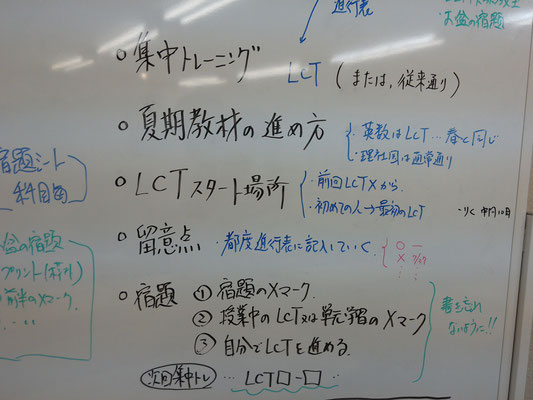 進行表
お盆の宿題
○ 集中トレーニング
LCT (または、従来通り)
○ 夏期教材の進め方
・英数はLCT…春と同じ
・理社国は通常通り
宿題シート
科目毎
○ LCTスタート場所
・前回LCT Xから
・初めての人→最初のLCT
○ 留意点
・都度進行表に記入していく
○ 一
盆の宿題
プリント
・前半のXマーク
○ 宿題
① 宿題のXマーク
② 授業中のLCT又は単元学習のXマーク
③ 自分でLCTを進める
書き忘れ
ないように!!
次回集中トレ … LCT□-□